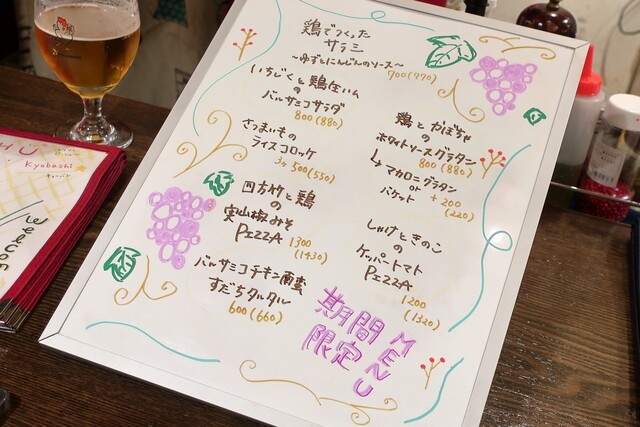 鶏でつくった
サラミ
～ゆずとにんじんのソース～
700(770)
いちじくと鶏生ハム
の
バルサミコサラダ
800(880)
さつまいもの
ライスコロッケ
3ヶ 500(550)
四方竹と鶏
の
実山椒みそ
PIZZA 1300
(1430)
バルサミコチキン南蛮
すだちタルタル
600(660)
鶏とかぼちゃ
の
ホワイトソースグラタン
800(880)
↳ マカロニグラタン
or
バケット
+200
(220)
しらすときのこ
の
ケッパートマト
PIZZA
1200
(1320)
期間
限定
MENU
Kyobashi
Welcom